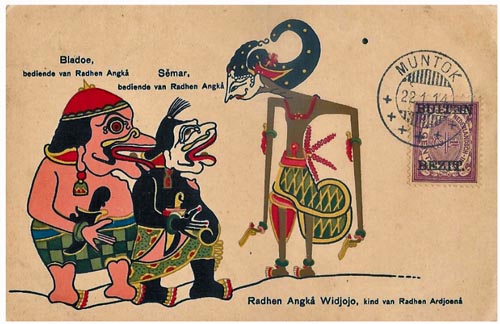 Bladoe,
bediende van Radhen Angkå
Sêmar,
bediende van Radhen Angkå
MUNTOK
22.1.14
BUITEN
BEZIT
Radhen Angkå Widjojo, kind van Radhen Ardjoenå